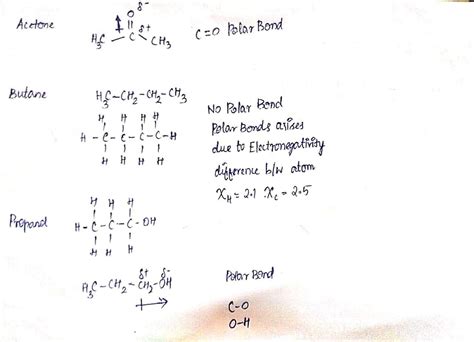 Acetone
O δ-
δ+
H₃C - C - CH₃
C=O Polar Bond
Butane
H₃C-CH₂-CH₂-CH₃
H H H H
H-C-C-C-C-H
H H H H
No Polar Bond
Polar Bonds arises
due to Electronegativity
difference b/w atom
X_H = 2.1 X_C = 2.5
Propanol
H H H
H-C-C-C-OH
H H
δ+ δ-
H₃C-CH₂-CH₂-OH
Polar Bond
C-O
O-H